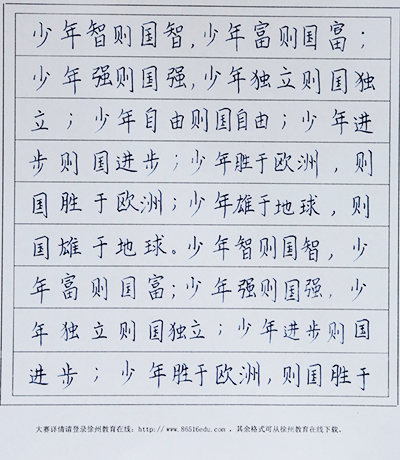 少年智则国智,少年富则国富;
少年强则国强,少年独立则国独
立;少年自由则国自由;少年进
步则国进步;少年胜于欧洲,则
国胜于欧洲;少年雄于地球,则
国雄于地球。少年智则国智,少
年富则国富;少年强则国强,少
年独立则国独立;少年进步则国
进步;少年胜于欧洲,则国胜于
大赛详情请登录徐州教育在线:http://www.86516edu.com ,其余格式可从徐州教育在线下载。